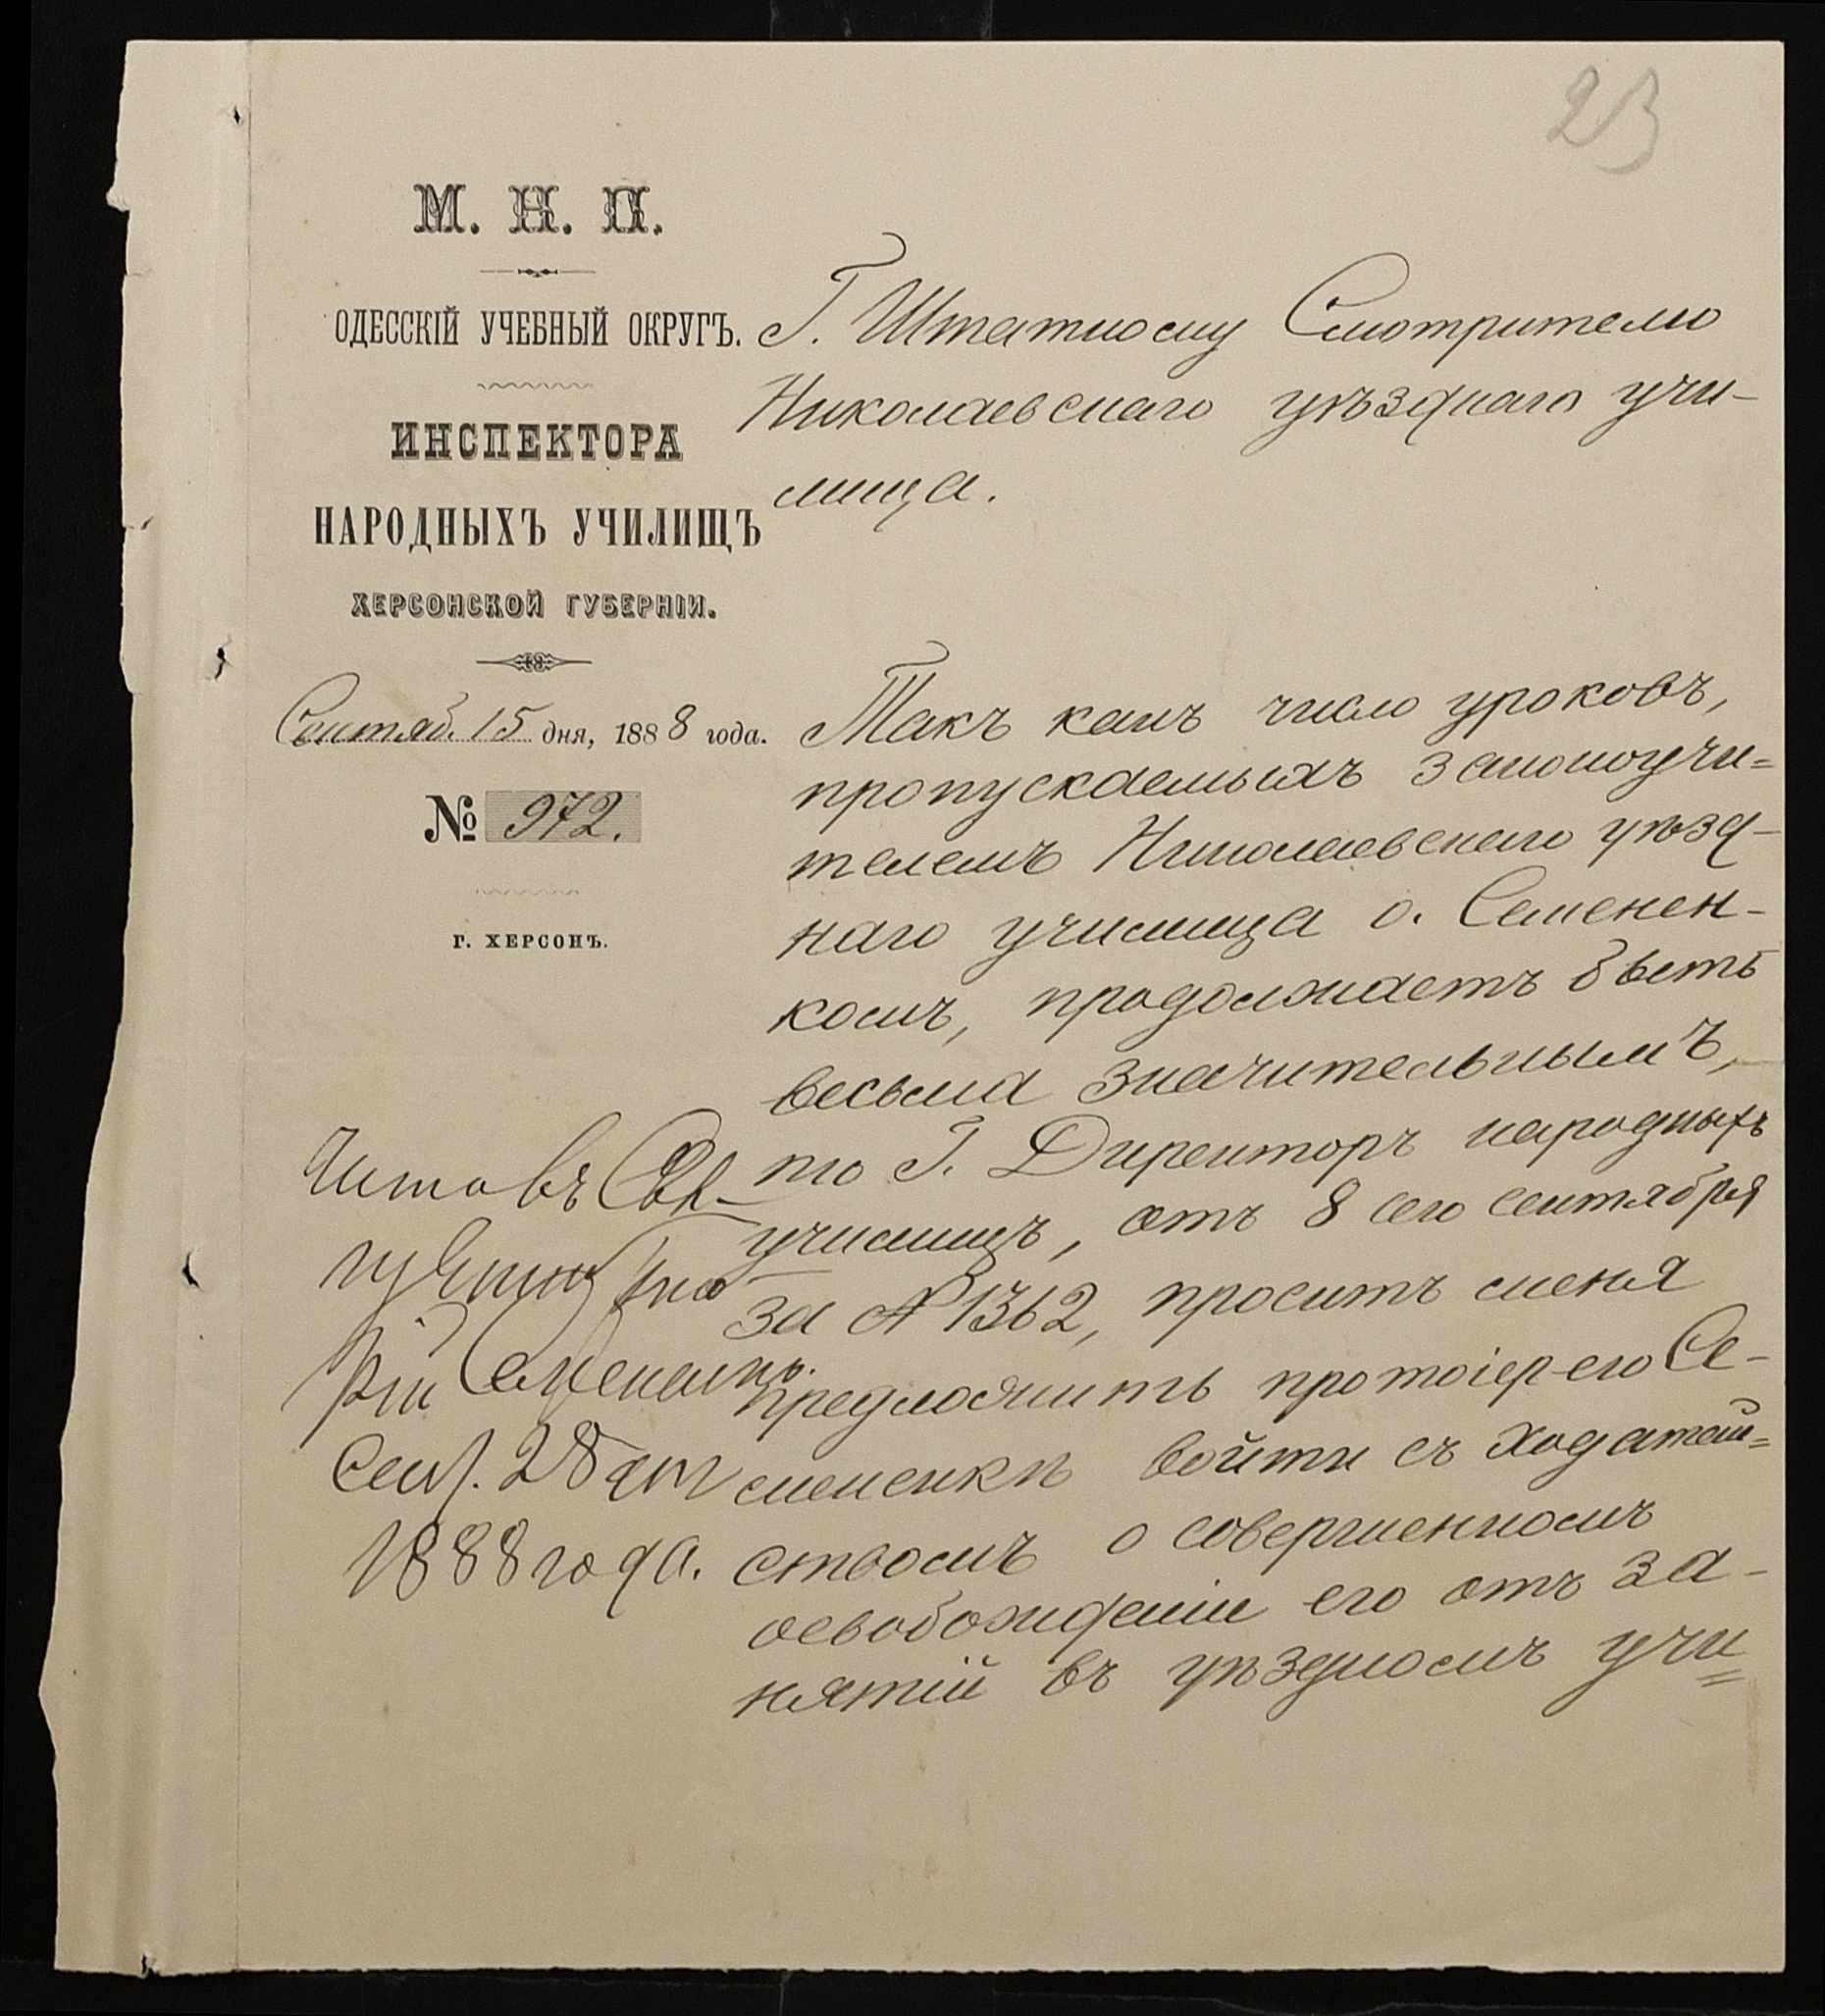 23
М. Н. П.
ОДЕССКІЙ УЧЕБНЫЙ ОКРУГЪ.
ИНСПЕКТОРА
НАРОДНЫХЪ УЧИЛИЩЪ
ХЕРСОНСКОЙ ГУБЕРНІИ.
Сентяб. 15 дня, 1888 года.
№ 972.
Г. ХЕРСОНЪ.
Г. Штатному Смотрителю
Николаевскаго уѣзднаго учи-
лища.
Такъ какъ число уроковъ,
пропускаемыхъ законоучи=
телемъ Николаевскаго уѣзд-
наго училища о. Семенен-
комъ, продолжаетъ быть
весьма значительнымъ,
то Г. Директоръ народныхъ
училищъ, отъ 8 сего сентября
за № 1362, проситъ меня
предложить протоіерею Се-
мененкѣ войти съ ходатай=
ствомъ о совершенномъ
освобожденіи его отъ за-
нятій въ уѣздномъ учи=
Читавъ
Сент. 28 дня
1888 года.